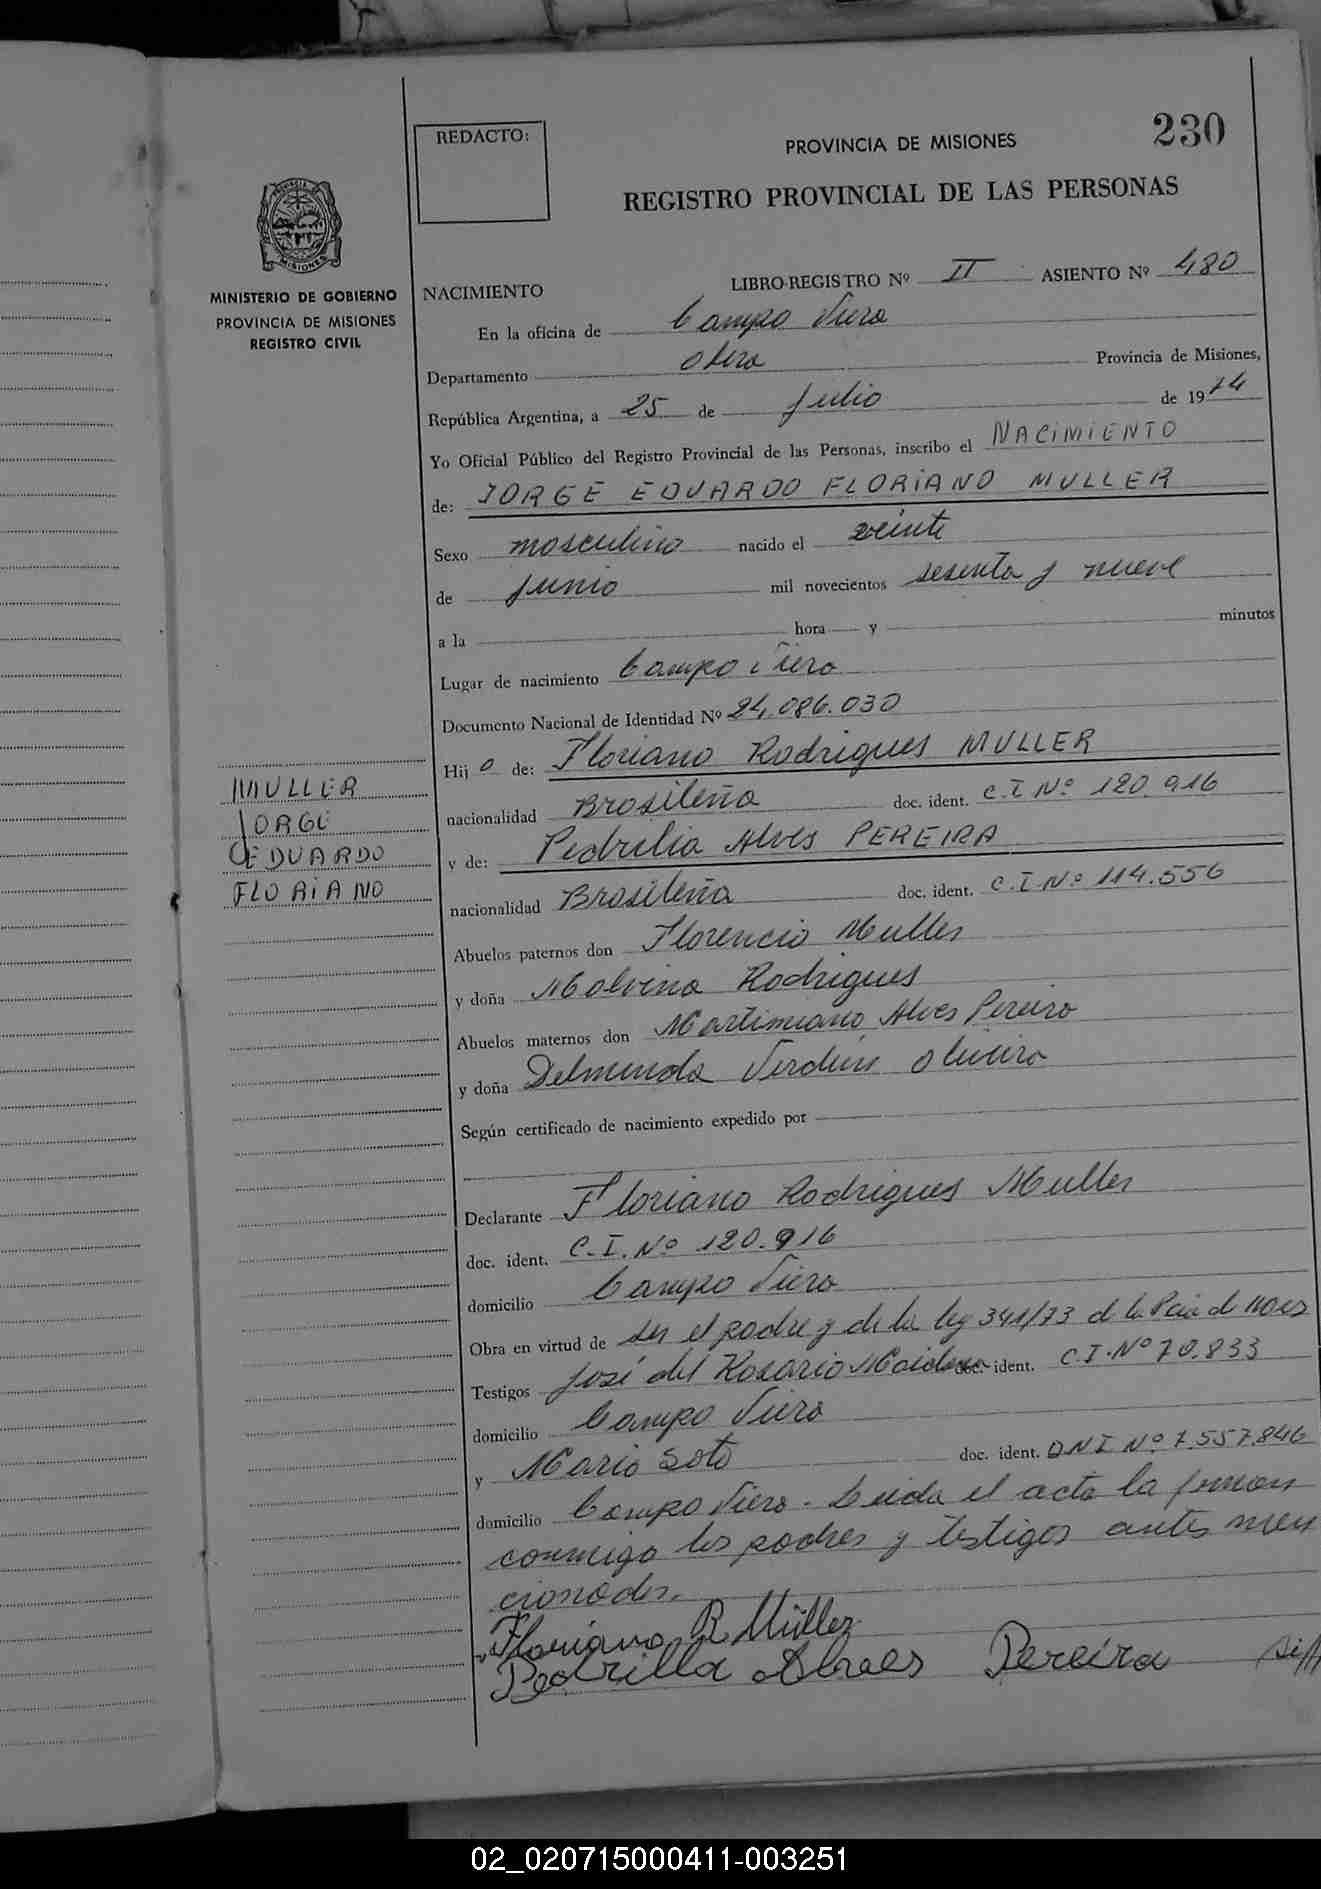 230
REDACTO:
PROVINCIA DE MISIONES
REGISTRO PROVINCIAL DE LAS PERSONAS
MINISTERIO DE GOBIERNO
PROVINCIA DE MISIONES
REGISTRO CIVIL
NACIMIENTO LIBRO-REGISTRO Nº II ASIENTO Nº 480
En la oficina de Campo Viera
Departamento Obera Provincia de Misiones,
República Argentina, a 25 de Julio de 1974
Yo Oficial Público del Registro Provincial de las Personas, inscribo el NACIMIENTO
de: JORGE EDUARDO FLORIANO MULLER
Sexo masculino nacido el veinte
de junio mil novecientos sesenta y nueve
a la hora y minutos
Lugar de nacimiento Campo Viera
Documento Nacional de Identidad Nº 24.086.030
Hij o de: Floriano Rodrigues MULLER
nacionalidad Brasileña doc. ident. C.I Nº 120.916
y de: Pedrilia Alves PEREIRA
nacionalidad Brasileña doc. ident. C.I Nº 114.556
MULLER
JORGE
EDUARDO
FLORIANO
Abuelos paternos don Florencio Muller
y doña Malvina Rodrigues
Abuelos maternos don Martimiano Alves Pereira
y doña Delmunda oliveira
Según certificado de nacimiento expedido por
Declarante Floriano Rodrigues Muller
doc. ident. C.I. Nº 120.916
domicilio Campo Viera
Obra en virtud de ser el padre y de la ley 341/73 de la
Testigos José del Rosario doc. ident. C.I. Nº 70.833
domicilio Campo Viera
y Mario Soto doc. ident. DNI Nº 7.557.846
domicilio Campo Viera. Leida el acta la firman
conmigo los padres y testigos antes men
cionados.
Floriano R. Müller
Pedrilla Alraes Pereira
02_020715000411-003251